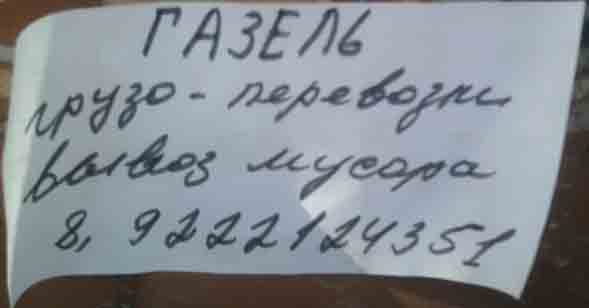 ГАЗЕЛЬ
грузо-перевозки
вывоз мусора
8, 9222124351